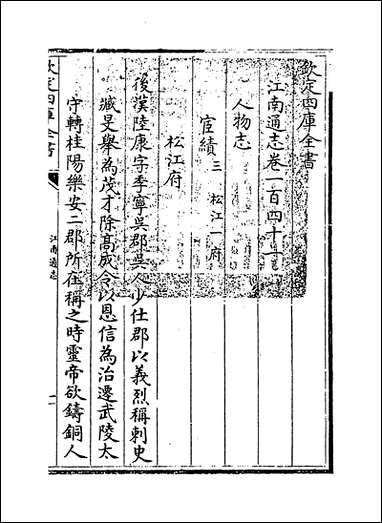 欽定四庫全書
江南通志卷一百四十一
人物志
宦績三 松江一府
松江府
後漢陸康字季寧吳郡吳人少仕郡以義烈稱刺史
臧旻舉為茂才除高成令以恩信為治遷武陵太
守轉桂陽樂安二郡所在稱之時靈帝欲鑄銅人
欽定四庫全書
江南通志
一